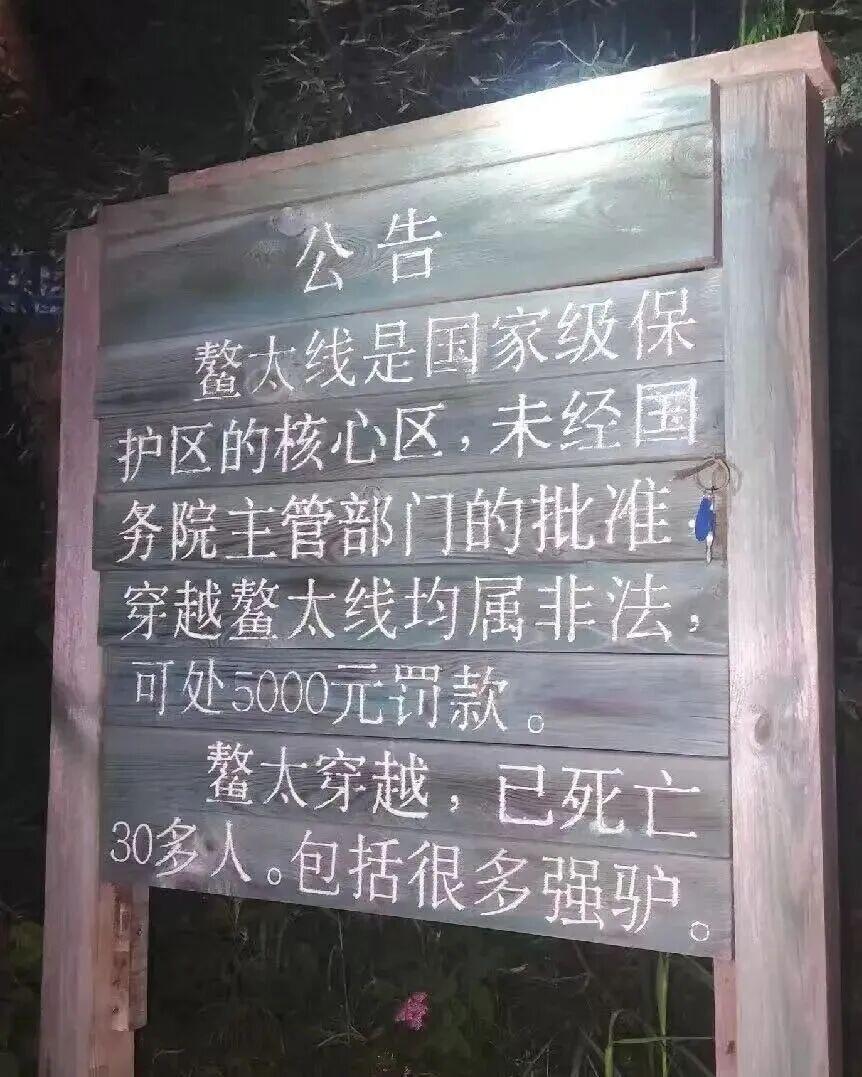 公告
鳌太线是国家级保
护区的核心区，未经国
务院主管部门的批准，
穿越鳌太线均属非法，
可处5000元罚款。
鳌太穿越，已死亡
30多人。包括很多强驴。